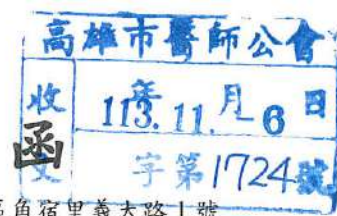 高雄市醫師公會
收文
113年11月6日
字第1724號
函
區角宿里義大路1號